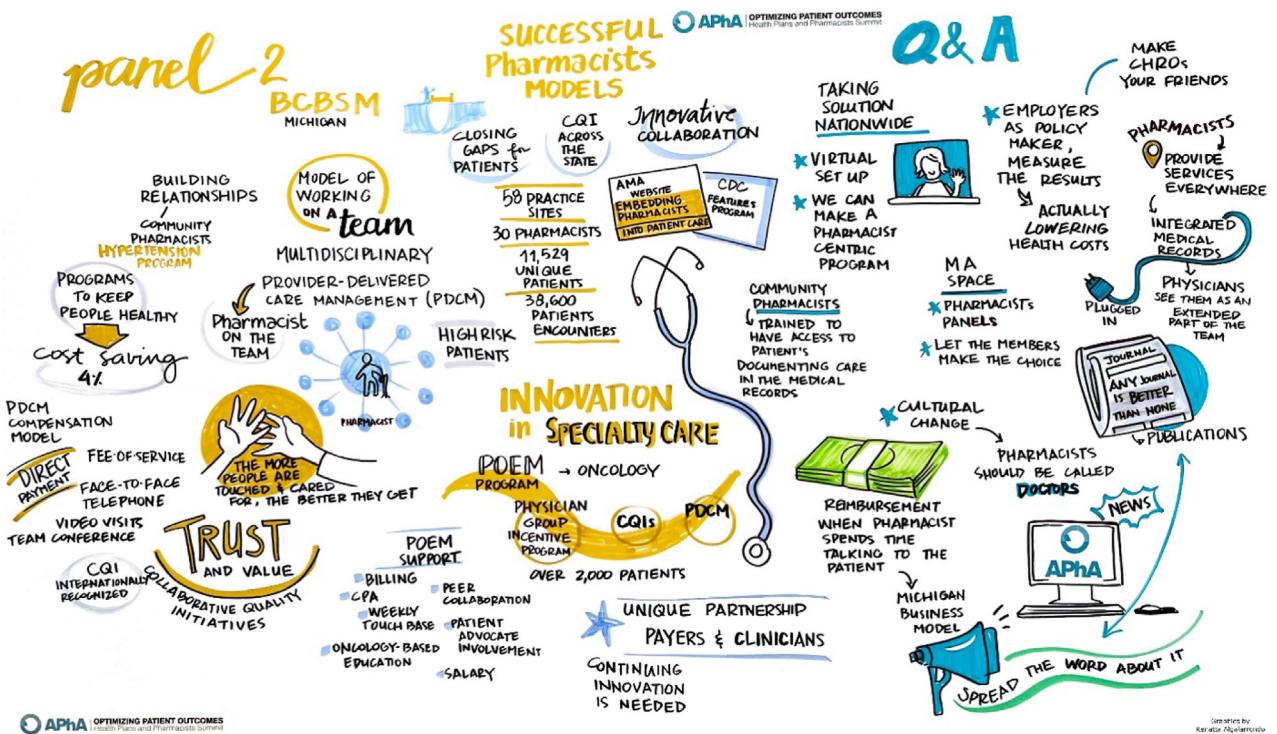 APhA | OPTIMIZING PATIENT OUTCOMES
Health Plans and Pharmacists Summit
panel 2
BCBSM
MICHIGAN
BUILDING
RELATIONSHIPS
COMMUNITY
PHARMACISTS
HYPERTENSION
PROGRAM
PROGRAMS
TO KEEP
PEOPLE HEALTHY
cost saving
4%
MODEL OF
WORKING
ON A
team
MULTIDISCIPLINARY
PROVIDER-DELIVERED
CARE MANAGEMENT (PDCM)
Pharmacist
ON THE
TEAM
PHARMACIST
HIGH RISK
PATIENTS
PDCM
COMPENSATION
MODEL
DIRECT
PAYMENT
FEE-OF-SERVICE
FACE-TO-FACE
TELEPHONE
VIDEO VISITS
TEAM CONFERENCE
THE MORE
PEOPLE ARE
TOUCHED & CARED
FOR, THE BETTER THEY GET
TRUST
AND VALUE
CQI
INTERNATIONALLY
RECOGNIZED
COLLABORATIVE QUALITY
INITIATIVES
SUCCESSFUL
Pharmacists
MODELS
CLOSING
GAPS for
PATIENTS
CQI
ACROSS
THE
STATE
Innovative
COLLABORATION
58 PRACTICE
SITES
30 PHARMACISTS
11,529
UNIQUE
PATIENTS
38,600
PATIENTS
ENCOUNTERS
AMA
WEBSITE
EMBEDDING
PHARMACISTS
INTO PATIENT CARE
CDC
FEATURES
PROGRAM
INNOVATION
in SPECIALTY CARE
POEM
PROGRAM
→ ONCOLOGY
PHYSICIAN
GROUP
INCENTIVE
PROGRAM
CQIs
PDCM
OVER 2,000 PATIENTS
POEM
SUPPORT
BILLING
CPA
WEEKLY
TOUCH BASE
ONCOLOGY-BASED
EDUCATION
PEER
COLLABORATION
PATIENT
ADVOCATE
INVOLVEMENT
SALARY
UNIQUE PARTNERSHIP
PAYERS & CLINICIANS
CONTINUING
INNOVATION
IS NEEDED
Q & A
TAKING
SOLUTION
NATIONWIDE
VIRTUAL
SET UP
WE CAN
MAKE A
PHARMACIST
CENTRIC
PROGRAM
COMMUNITY
PHARMACISTS
TRAINED TO
HAVE ACCESS TO
PATIENT'S
DOCUMENTING CARE
IN THE MEDICAL
RECORDS
MAKE
CHROs
YOUR FRIENDS
EMPLOYERS
AS POLICY
MAKER,
MEASURE
THE RESULTS
ACTUALLY
LOWERING
HEALTH COSTS
MA
SPACE
PHARMACISTS
PANELS
LET THE MEMBERS
MAKE THE CHOICE
PHARMACISTS
PROVIDE
SERVICES
EVERYWHERE
INTEGRATED
MEDICAL
RECORDS
PLUGGED
IN
PHYSICIANS
SEE THEM AS AN
EXTENDED
PART OF THE
TEAM
JOURNAL
ANY JOURNAL
IS BETTER
THAN NONE
PUBLICATIONS
CULTURAL
CHANGE
PHARMACISTS
SHOULD BE CALLED
DOCTORS
REIMBURSEMENT
WHEN PHARMACIST
SPENDS TIME
TALKING TO THE
PATIENT
MICHIGAN
BUSINESS
MODEL
NEWS
APhA
SPREAD THE WORD ABOUT IT
APhA | OPTIMIZING PATIENT OUTCOMES
Health Plans and Pharmacists Summit
Graphics by